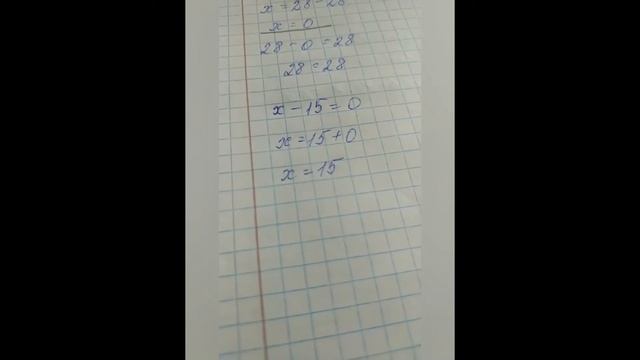 x = 28 - 28
x = 0
28 - 0 = 28
28 = 28
x - 15 = 0
x = 15 + 0
x = 15